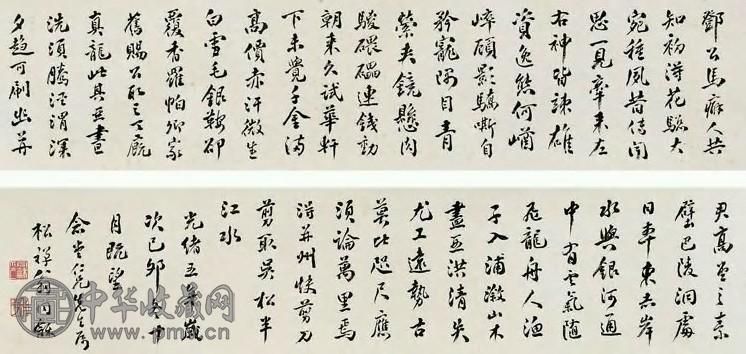 鄧公馬癖人共
知初得花驄大
宛種夙昔傳聞
思一見牽來左
右神皆竦雄
姿逸態何崷
崒顧影驕嘶自
矜寵隅目青
熒夾鏡懸肉
駿碨礌連錢動
朝來久試華軒
下未覺千金滿
高價赤汗微生
白雪毛銀鞍卻
覆香羅帕卿家
舊賜公取之天廄
真龍此其亞晝
洗須騰涇渭深
夕趨可刷幽并
君高堂之素
壁巴陵洞庭
日本東赤岸
水與銀河通
中有雲氣隨
飛龍舟人漁
子入浦漵山木
盡亞洪濤風
尤工遠勢古
莫比咫尺應
須論萬里焉
得并州快剪刀
剪取吳松半
江水
光緒五年歲
次己卯冬十
月既望
念堂仁兄先生属
松禪翁同龢
中华收藏网
www.pmcn.cn